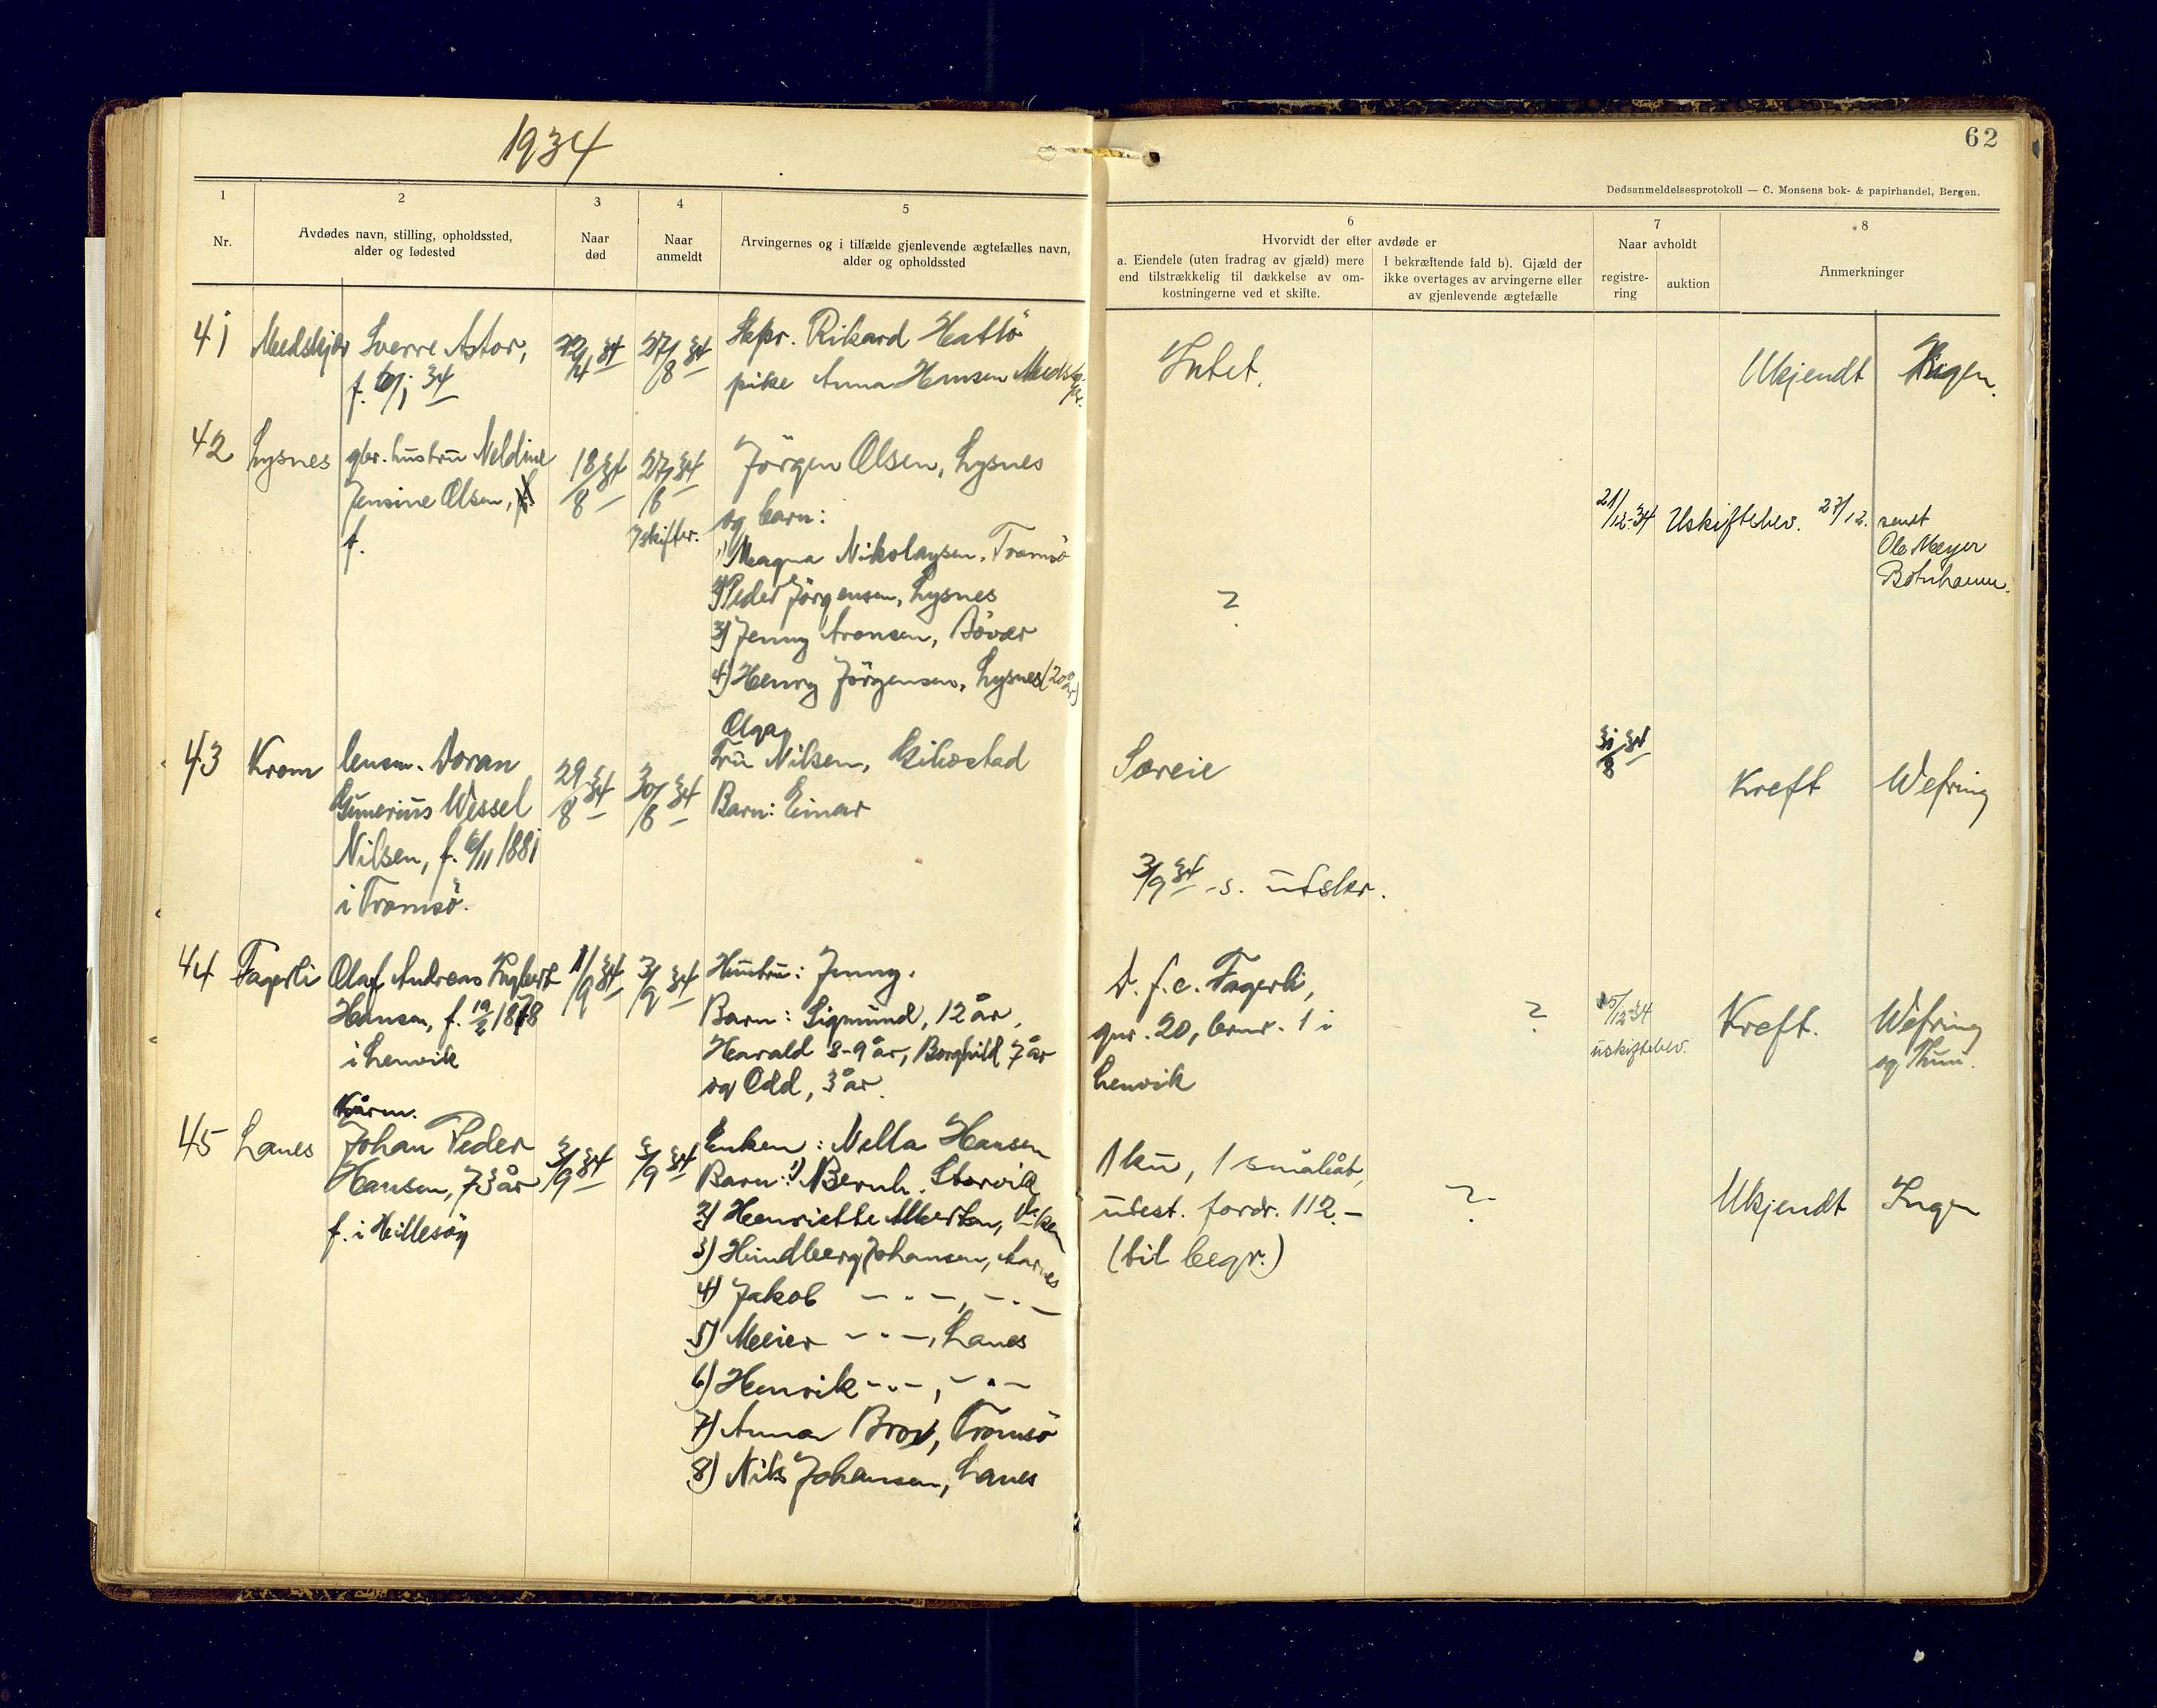 1934
62
Dødsanmeldelsesprotokoll — C. Monsens bok- & papirhandel, Bergen.
1
2
3
4
5
6
7
8
Nr.
Avdødes navn, stilling, opholdssted,
alder og fødested
Naar
død
Naar
anmeldt
Arvingernes og i tilfælde gjenlevende ægtefælles navn,
alder og opholdssted
Hvorvidt der efter avdøde er
a. Eiendele (uten fradrag av gjæld) mere
end tilstrækkelig til dækkelse av om-
kostningerne ved et skifte.
I bekræftende fald b). Gjæld der
ikke overtages av arvingerne eller
av gjenlevende ægtefælle
Naar avholdt
registre-
ring
auktion
Anmerkninger
41
Sverre Astor,
34
27/8 34
Rikard Hattö
pike Anna Hansen
Intet.
Ukjendt
Ingen.
42
Lysnes
gbr. hustru Neldine
Jensine Olsen,
f.
18/8 34
27/8 34
Jörgen Olsen, Lysnes
og barn:
1) Magna Nikolaysen, Tromsö
2) Peder Jörgensen, Lysnes
3) Jenny Aronsen, Bövær
4) Henry Jörgensen, Lysnes (20 år)
?
21/12-34
Uskiftebev. 27/12.
sendt
Ole Meyer
Botnhamn.
43
Krom
lensm. Doran
Gunerius Wessel
Nilsen, f. 6/11 1881
i Tromsö.
29/8 34
30/8 34
Olga
Fru Nilsen, Gibostad
Barn: Einar
Særeie
3/9 34 - s. utskr.
31/8 34
Kreft
Wefring
44
Fagerli
Olaf Andreas
Hansen, f. 19/2 1878
i Lenvik
1/9 34
3/9 34
Hustru: Jenny.
Barn: Sigmund, 12 år,
Harald 8-9 år, Borghild 7 år
og Odd, 3 år.
D. f. e. Fagerli,
gnr. 20, brnr. 1 i
Lenvik
?
15/12-34
uskiftebev.
Kreft.
Wefring
og Thuu.
45
Lanes
Kårm.
Johan Peder
Hansen, 73 år
f. i Hillesöy
3/9 34
3/9 34
Enken: Nella Hansen
Barn: 1) Bernh. Storvik
2) Henriette
3) Hindberg Johansen,
4) Jakob —"—, —"—
5) Meier —"—, Lanes
6) Henrik —"—, —"—
7) Anna Brox, Tromsö
8) Nils Johansen, Lanes
1 ku, 1 småbåt,
utest. fordr. 112.—
(til begr.)
?
Ukjendt
Ingen